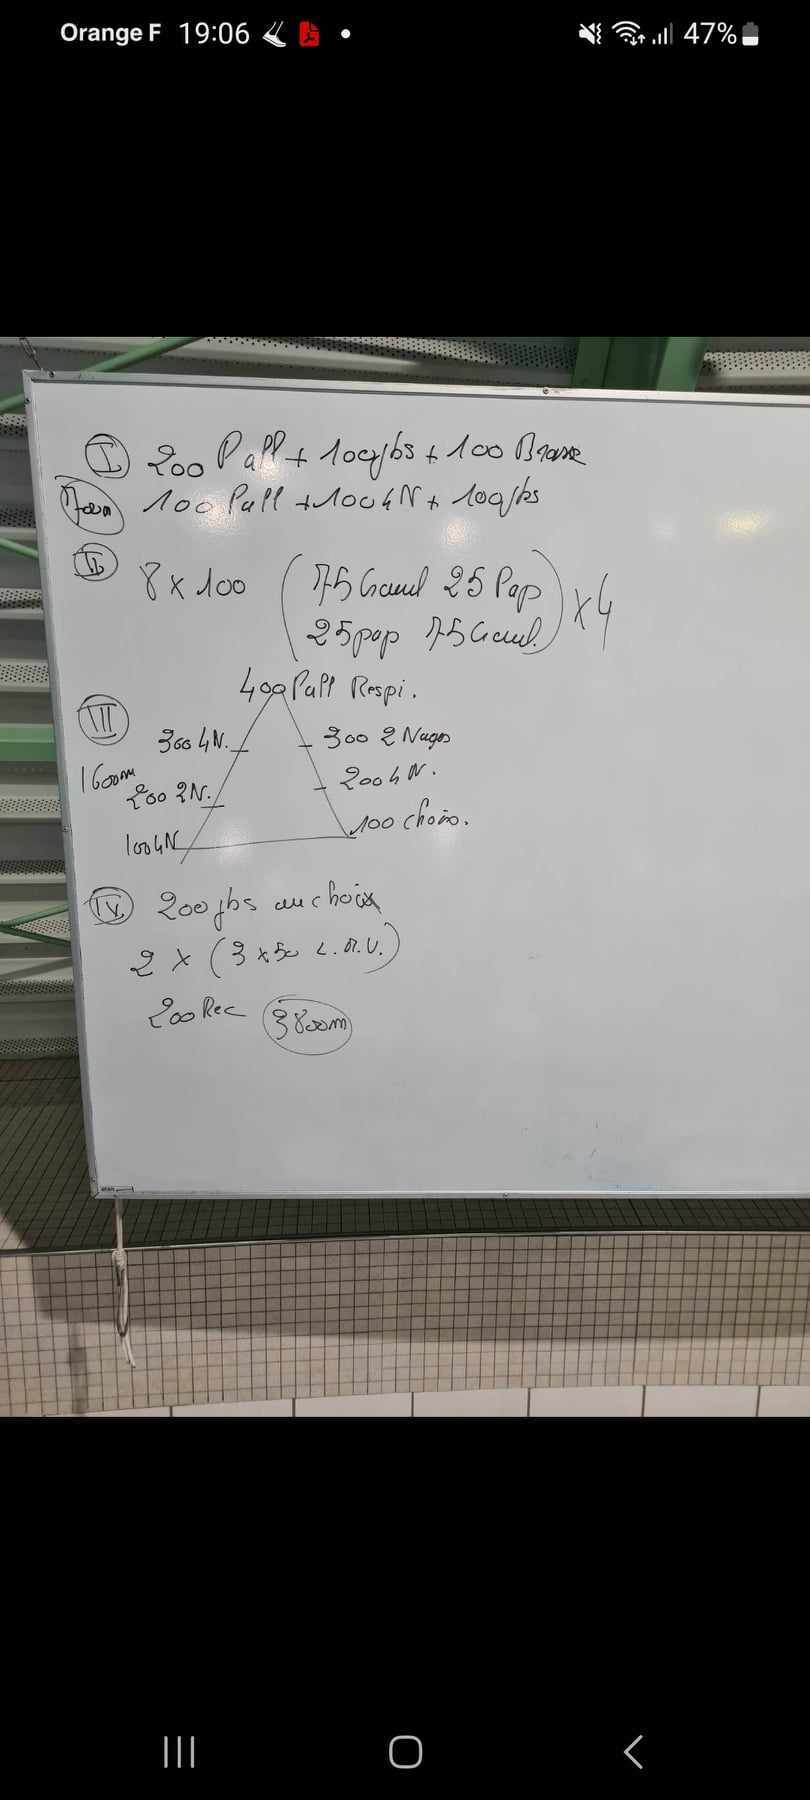 Orange F 19:06 47%
I 200 Pull + 100jbs + 100 Brasse
700m 100 Pull + 100 4N + 100jbs
II 8 x 100 (75 Crawl 25 Pap
25 pap 75 Crawl.) x 4
400 Pull Respi.
III
300 4N. 300 2 Nages
1600m
200 2N. 200 4N.
100 4N 100 choix.
IV 200 jbs au choix
2 x (3 x 50 L.M.V.)
200 Rec 3800m